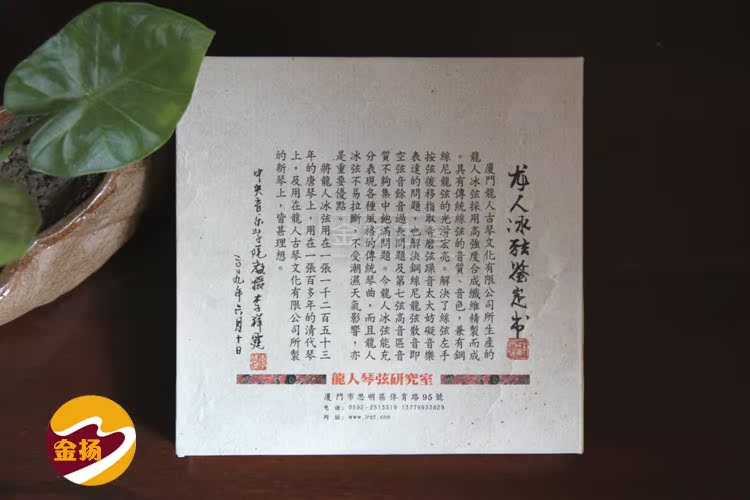 龙人冰弦鉴定书
廈門龍人古琴文化有限公司所生產的
龍人冰弦採用高強度合成纖維精製而成
。具有傳統絲弦的音質、音色，兼有鋼
絲尼龍弦的光滑宏亮。解決了絲弦左手
按弦後移指取音磨弦躁音太大妨礙音樂
表達的問題，也解決鋼絲尼龍弦散音即
空弦音餘音過長問題及第七弦高音區音
質不夠集中飽滿問題。今龍人冰弦能充
分表現各種風格的傳統琴曲，而且龍人
冰弦不易拉斷，不受潮濕天氣影響，亦
是重要優點。
將龍人冰弦用在一張一千二百五十三
年的唐琴上，用在一張百多年的清代琴
上，及用在龍人古琴文化有限公司所製
的新琴上，皆甚理想。
中央音乐学院教授李祥霆
二〇〇九年六月十日
龍人琴弦研究室
廈門市思明區体育路95號
电話：0592-2513319 13779933829
网址：www.lrqf.com
金扬